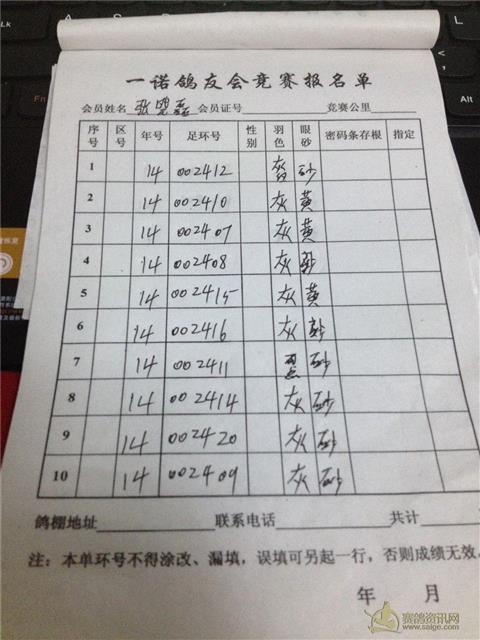 一诺鸽友会竞赛报名单
会员姓名 张 会员证号 竞赛公里
序号 区号 年号 足环号 性别 羽色 眼砂 密码条存根 指定
1 14 002412 砂
2 14 002410 灰 黄
3 14 002407 灰 黄
4 14 002408 灰
5 14 002415 灰 黄
6 14 002416 灰
7 14 002411 砂
8 14 002414 灰 砂
9 14 002420 灰 砂
10 14 002409 灰 砂
鸽棚地址 联系电话 共计
注：本单环号不得涂改、漏填，误填可另起一行，否则成绩无效。
年 月
赛鸽资讯网
www.saige.com
Fn
Alt